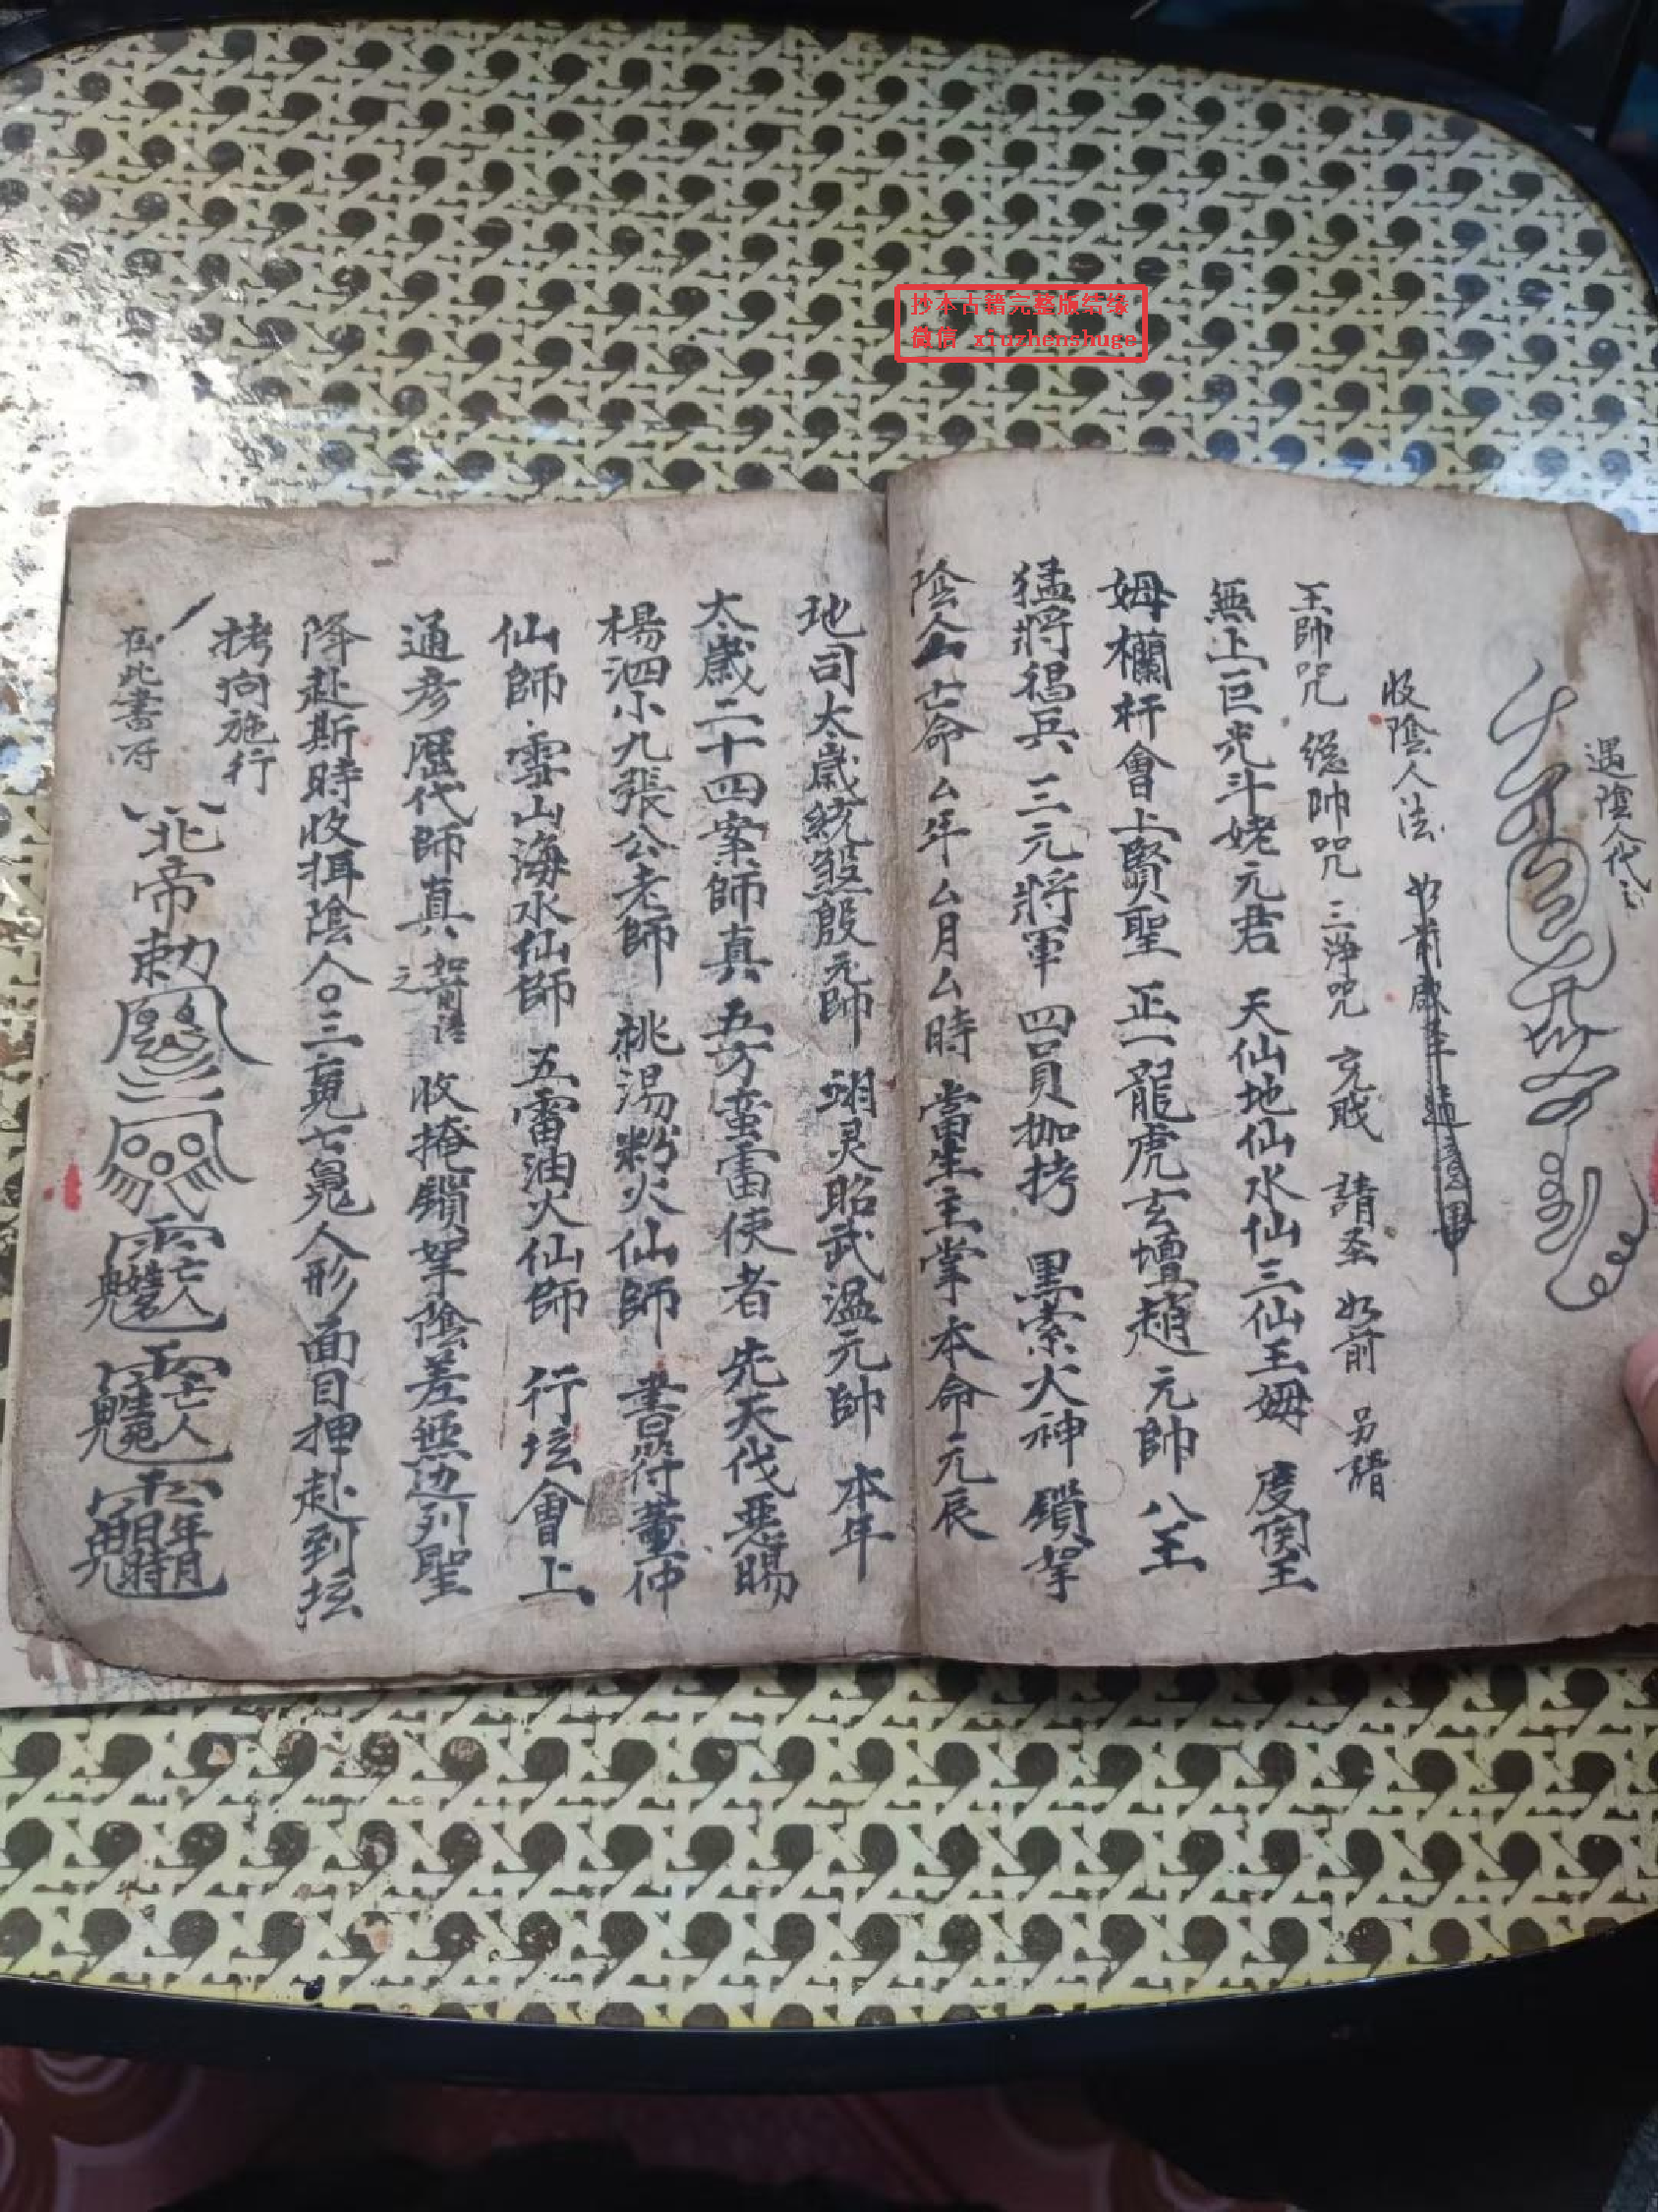 抄本古籍完整版结缘
微信 xiuzhenshuge
遇陰人代之
收陰人法 如前
王帥咒 總帥咒 三淨咒 亮職 請圣 如前 另請
無上巨光斗姥元君 天仙地仙水仙三仙王姆 度関王
姆欄杆會上賢聖 正一龍虎玄壇趙元帥 八王
猛將禓兵 三元將軍 四員枷拷 黑索火神 鎖拏
陰人厶亡命厶年厶月厶時 當生主掌本命元辰
地司太歲統殺殷元帥 翊灵昭武溫元帥 本年
太歲二十四案師真 五方蛮雷使者 先天伐惡賜
楊泗小九張公老師 桃湯粉火仙師 書符董仲
仙師 雪山海水仙師 五雷油火仙師 行坛會上
通彦歷代師真 如前請之 收掩鎖拏陰差無边列聖
降赴斯時收捐陰人〇三魂七魄人形面目押赴到坛
拷向施行
在此書符
北帝勅
亡人
亡人
年月日時